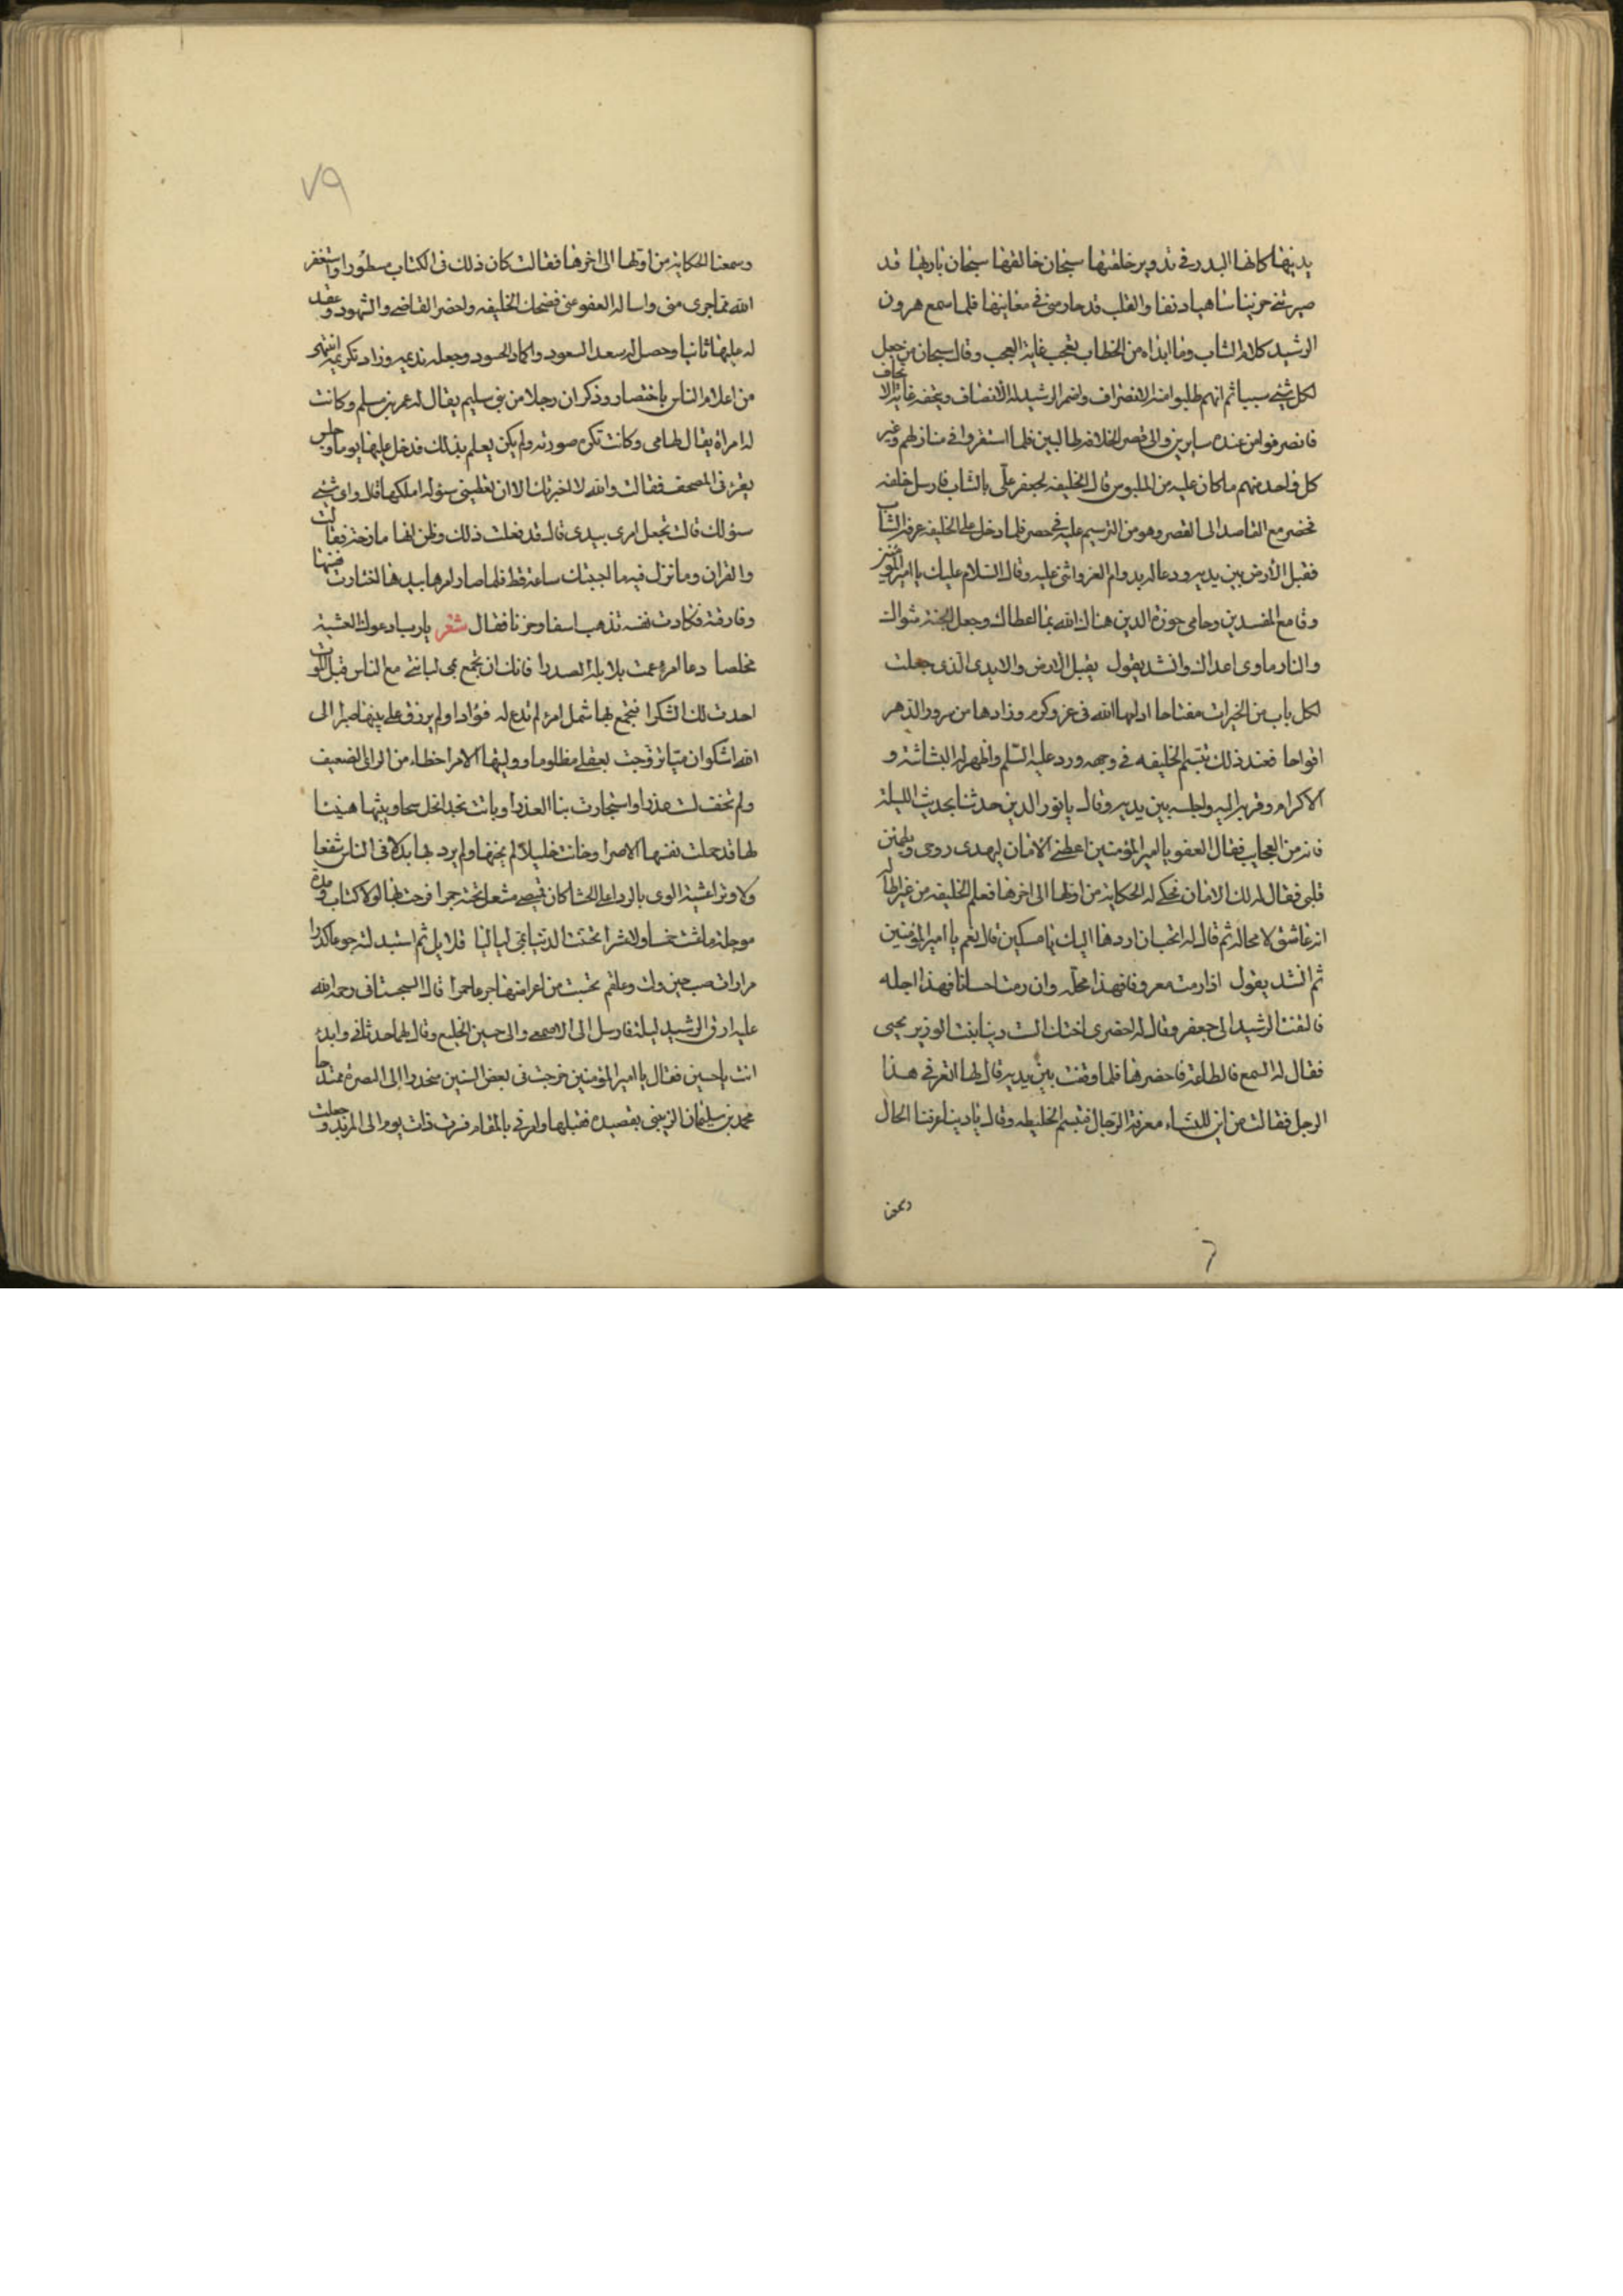 يدينها كانها البدر في تدوير خلقتها سبحان خالقها سبحان باريها قد
صيرتني حزينا ساهيا دنفا والقلب قد حار مني في معانيها فلما سمع هرون
الرشيد كلام الشاب وما ابداه من الخطاب تعجب غاية العجب وقال سبحان من جعل
لكل شيء سببا ثم انهم طلبوا منه الانصراف واضمر الرشيد له الانصاف ويتحفه غاية الاتحاف
فانصرفوا من عنده سايرين والى قصر الخلافة طالبين فلما استقروا في منازلهم وغير
كل واحد منهم ما كان عليه من الملبوس قال الخليفه لجعفر علي بالشاب فارسل خلفه
فحضر مع القاصد الى القصر وهو من الترسيم عليه في حصر فلما دخل على الخليفه عرفه الشاب
فقبل الارض بين يديه ودعا له بدوام العز واثنى عليه وقال السلام عليك يا امير المومنين
وقامع المفسدين وحامي حوزة الدين هناك الله بما اعطاك وجعل الجنة مثواك
والنار ماوى اعداك وانشد يقول يقبل الارض والايدي الذي جعلت
لكل باب من الخيرات مفتاحا ادامها الله في عز وكرم وزادها من سرور الدهر
افراحا فعند ذلك تبسم الخليفه في وجهه ورد عليه السلم واظهر له البشاشة و
الاكرام وقربه اليه واجلسه بين يديه وقال يا نور الدين حدثنا بحديث الليلة
فانه من العجايب فقال العفو يا امير المؤمنين اعطني الامان ليهدى روعي ويطمئن
قلبي فقال له لك الامان فحكى له الحكاية من اولها الى اخرها فعلم الخليفه من غير اطاله
انه عاشق لا محاله ثم قال له اتحب ان اردها اليك يا مسكين قال نعم يا امير المؤمنين
ثم انشد يقول اذا رمت معروفا فهذا محله وان رمت احسانا فهذا اجله
فالتفت الرشيد الى جعفر وقال له احضر لي اختك الست دينا بنت الوزير يحيى
فقال له السمع والطاعة فاحضرها فلما وقفت بين يديه قال لها اتعرفي هذا
الرجل فقالت من اين للنساء معرفة الرجال فتبسم الخليفه وقال يا دينا عرفنا الحال
وسمعنا
٧٩
وسمعنا الحكاية من اولها الى اخرها فقالت كان ذلك في الكتاب مسطورا واستغفر
الله مما جرى مني واساله العفو عني فضحك الخليفه واحضر القاضي والشهود وعقد
له عليها ثانيا وحصل له سعد السعود واكماد الحسود وجعله نديمه وزاد تكريمه انتهى
من اعلام الناس باختصار وذكر ان رجلا من بني سليم يقال له عمر بن مسلم وكانت
له امراة يقال لها مي وكانت تكره صورته ولم يكن يعلم بذلك فدخل عليها يوما وجلس
يقرء في المصحف فقالت والله لا اخبرتك الا ان تعطيني سؤله املكها قال واي شيء
سؤلك قالت تجعل امري بيدي قال قد فعلت ذلك وظن انها مازحة فقالت
والقران وما نزل فيه ما احببتك ساعة قط فلما صار امرها بيدها اختارت نفسها
وفارقته فكادت نفسه تذهب اسفا وحزنا فقال شعر يا رب ادعوك العشية
مخلصا دعا امرء عمت بلابله الصدرا فانك ان تجمع بمي لبانتي مع الناس قبل الموت
احدث لك الشكرا فتجمع بها شمل امرء لم تدع له فؤادا ولم يرزق على بينها صبرا الى
الله اشكوا ان ميا تزوجت بعقلي مظلوما ووليتها الامرا خطاء من الراي الضعيف
ولم تخف لت عذرا واستجارت بنا العذرا وباتت
لها قد حملت نفسها الاصرا وخانت خليلا لم يخنها ولم يرد لها بدلا في الناس شفعا
ولا وترا عشية الوي بالردا على الحشا كان قميصي مشعل تحته جمرا فرحت بها لولا كتاب ومدة
موجلة ما عشت خمسا ولا عشرا
مرارات وعلقم تحبت من اعراضها جرعا حمرا قال السجستاني رحمة الله
عليه ارق الرشيد ليلة فارسل الى الاصمعي والى حسين الخليع وقال لهما حدثاني وابدء
انت يا حسين فقال يا امير المؤمنين خرجت في بعض السنين منحدرا الى البصرة ممتدحا
محمد بن سليمان الزينبي بقصيدة فقبلها وامرني بالمقام فخرجت ذات يوم الى المربد وجعلت